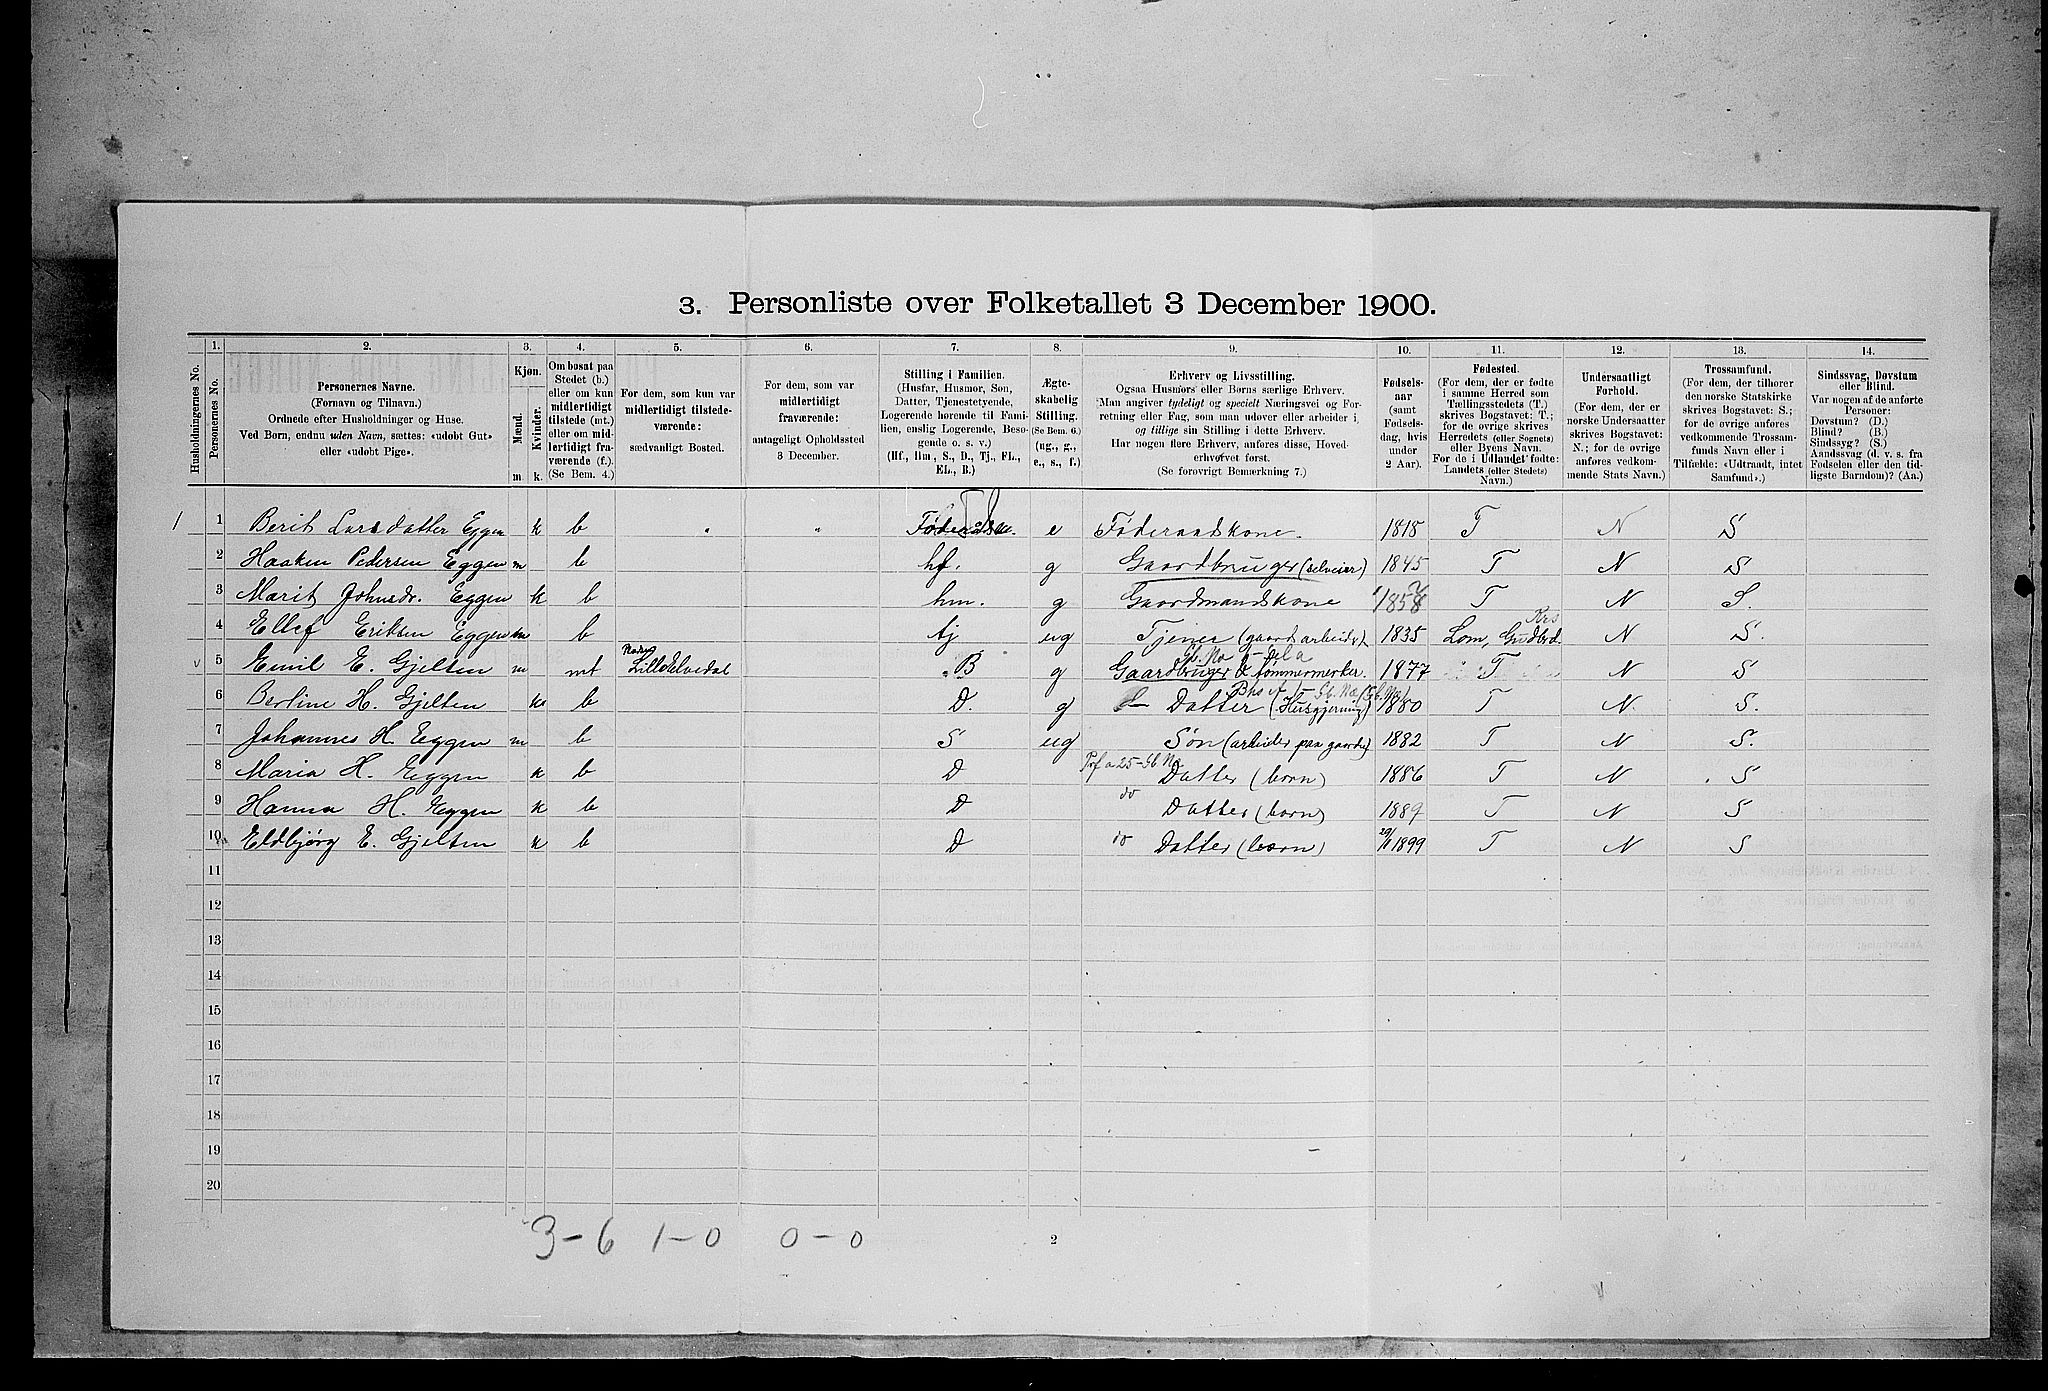 3. Personliste over Folketallet 3 December 1900.
Husholdningernes No.
1. Personernes No.
2. Personernes Navne. (Fornavn og Tilnavn.) Ordnede efter Husholdninger og Huse. Ved Børn, endnu uden Navn, sættes: «udøbt Gut» eller «udøbt Pige».
3. Kjøn. Mænd. m. Kvinder. k.
4. Om bosat paa Stedet (b.) eller om kun midlertidigt tilstede (mt.) eller om midlertidigt fraværende (f.). (Se Bem. 4.)
5. For dem, som kun var midlertidigt tilstedeværende: sædvanligt Bosted.
6. For dem, som var midlertidigt fraværende: antageligt Opholdssted 3 December.
7. Stilling i Familien. (Husfar, Husmor, Søn, Datter, Tjenestetyende, Logerende hørende til Familien, enslig Logerende, Besøgende o. s. v.) (Hf., Hm., S., D., Tj., FL., EL., B.)
8. Ægteskabelig Stilling. (Se Bem. 6.) (ug., g., e., s., f.)
9. Erhverv og Livsstilling. Ogsaa Husmors eller Børns særlige Erhverv. Man angiver tydeligt og specielt Næringsvei og Forretning eller Fag, som man udøver eller arbeider i, og tillige sin Stilling i dette Erhverv. Har nogen flere Erhverv, anføres disse, Hovederhvervet først. (Se forøvrigt Bemærkning 7.)
10. Fødselsaar (samt Fødselsdag, hvis under 2 Aar).
11. Fødested. (For dem, der er fødte i samme Herred som Tællingsstedets (T.) skrives Bogstavet: T.; for de øvrige skrives Herredets (eller Sognets) eller Byens Navn. For de i Udlandet fødte: Landets (eller Stedets) Navn.)
12. Undersaatligt Forhold. (For dem, der er norske Undersaatter skrives Bogstavet: N.; for de øvrige anføres vedkommende Stats Navn.)
13. Trossamfund. (For dem, der tilhører den norske Statskirke skrives Bogstavet: S.; for de øvrige anføres vedkommende Trossamfunds Navn eller i Tilfælde: «Udtraadt, intet Samfund».)
14. Sindssvag, Døvstum eller Blind. Var nogen af de anførte Personer: Døvstum? (D.) Blind? (B.) Sindssyg? (S.) Aandssvag (d. v. s. fra Fødselen eller den tidligste Barndom)? (Aa.)
1 1 Berit Larsdatter Eggen k b " " e Føderaadskone. 1818 T N S
2 Haaken Pedersen Eggen m b hf. g Gaardbruger (selveier) 1845 T N S
3 Marit Johnsdr. Eggen k b hm. g Gaardmandskone T N S.
4 Ellef Eriksen Eggen m b tj ug Tjener (gaardsarbeider) 1835 Lom, Gudbrd. Krs N S.
v 5 Emil E. Gjelten m mt Lilleelvedal B g Gaardbruger & tømmermerker. 1877 T N S
6 Berline H. Gjelten k b D. g Datter (Husgjerning) 1880 T N. S.
7 Johannes H. Eggen m b S ug Søn (arbeider paa gaarde) 1882 T N S.
8 Maria H. Eggen k b D Datter (barn) 1886 T N S
9 Hanna H. Eggen k b D do Datter (barn) 1889 T N S
10 Eldbjørg E. Gjelten k b D do Datter (barn) 1899 T N S
11
12
13
14
15
16
17
18
19
20
3-6 1-0 0-0
2